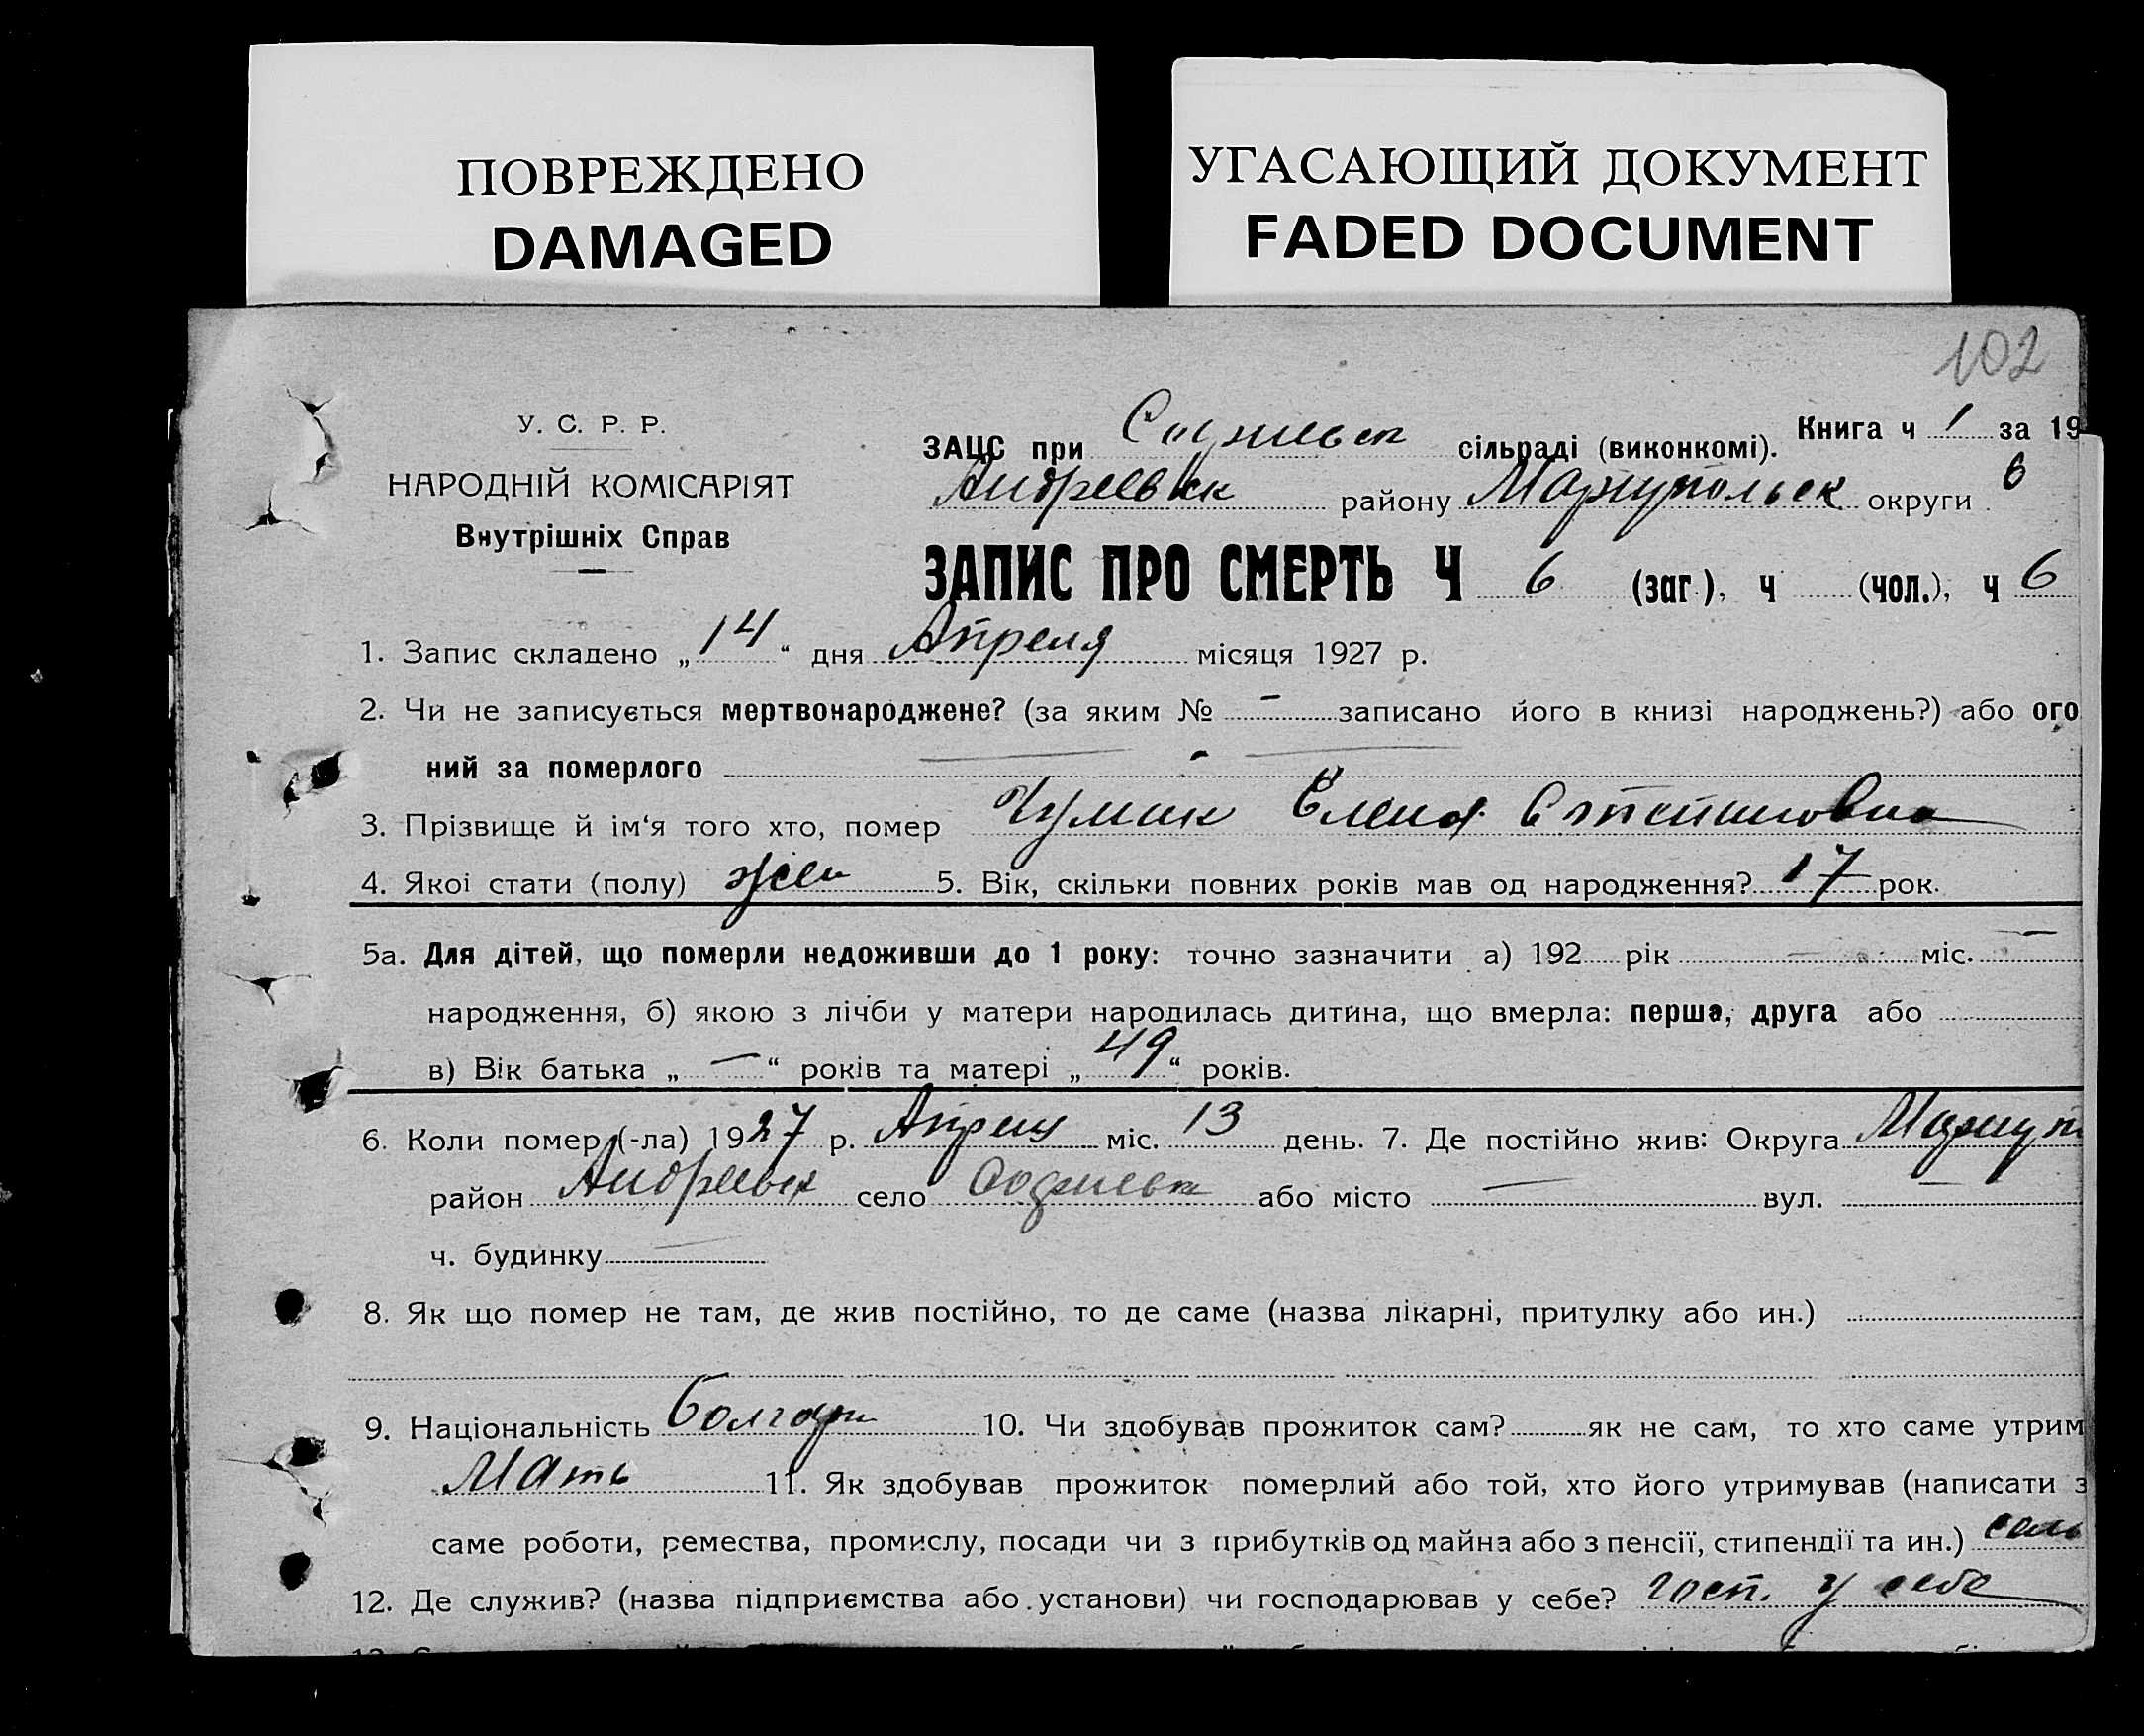 ПОВРЕЖДЕНО
DAMAGED
УГАСАЮЩИЙ ДОКУМЕНТ
FADED DOCUMENT
102
У. С. Р. Р.
НАРОДНІЙ КОМІСАРІЯТ
Внутрішніх Справ
Книга ч 1 за 19
ЗАЦС при сільраді (виконкомі).
Андреевск району Мариупольск округи 6
ЗАПИС ПРО СМЕРТЬ Ч 6 (заг.), ч (чол.), ч 6
1. Запис складено „14“ дня Апреля місяця 1927 р.
2. Чи не записується мертвонароджене? (за яким № - записано його в книзі народжень?) або ого
ний за померлого
3. Прізвище й ім‘я того хто, помер Елена
4. Якої стати (полу) жен 5. Вік, скільки повних років мав од народження? 17 рок.
5а. Для дітей, що померли недоживши до 1 року: точно зазначити а) 192 рік — міс. —
народження, б) якою з лічби у матери народилась дитина, що вмерла: перша, друга або
в) Вік батька „—“ років та матері „49“ років.
6. Коли помер (-ла) 1927 р. Апреля міс. 13 день. 7. Де постійно жив: Округа Мариуп
район Андреевск село або місто — вул. —
ч. будинку —
8. Як що помер не там, де жив постійно, то де саме (назва лікарні, притулку або ин.)
9. Національність болгарк 10. Чи здобував прожиток сам? як не сам, то хто саме утрим
Мать 11. Як здобував прожиток померлий або той, хто його утримував (написати з
саме роботи, ремества, промислу, посади чи з прибутків од майна або з пенсії, стипендії та ин.) сель
12. Де служив? (назва підприємства або установи) чи господарював у себе? госп. у себе